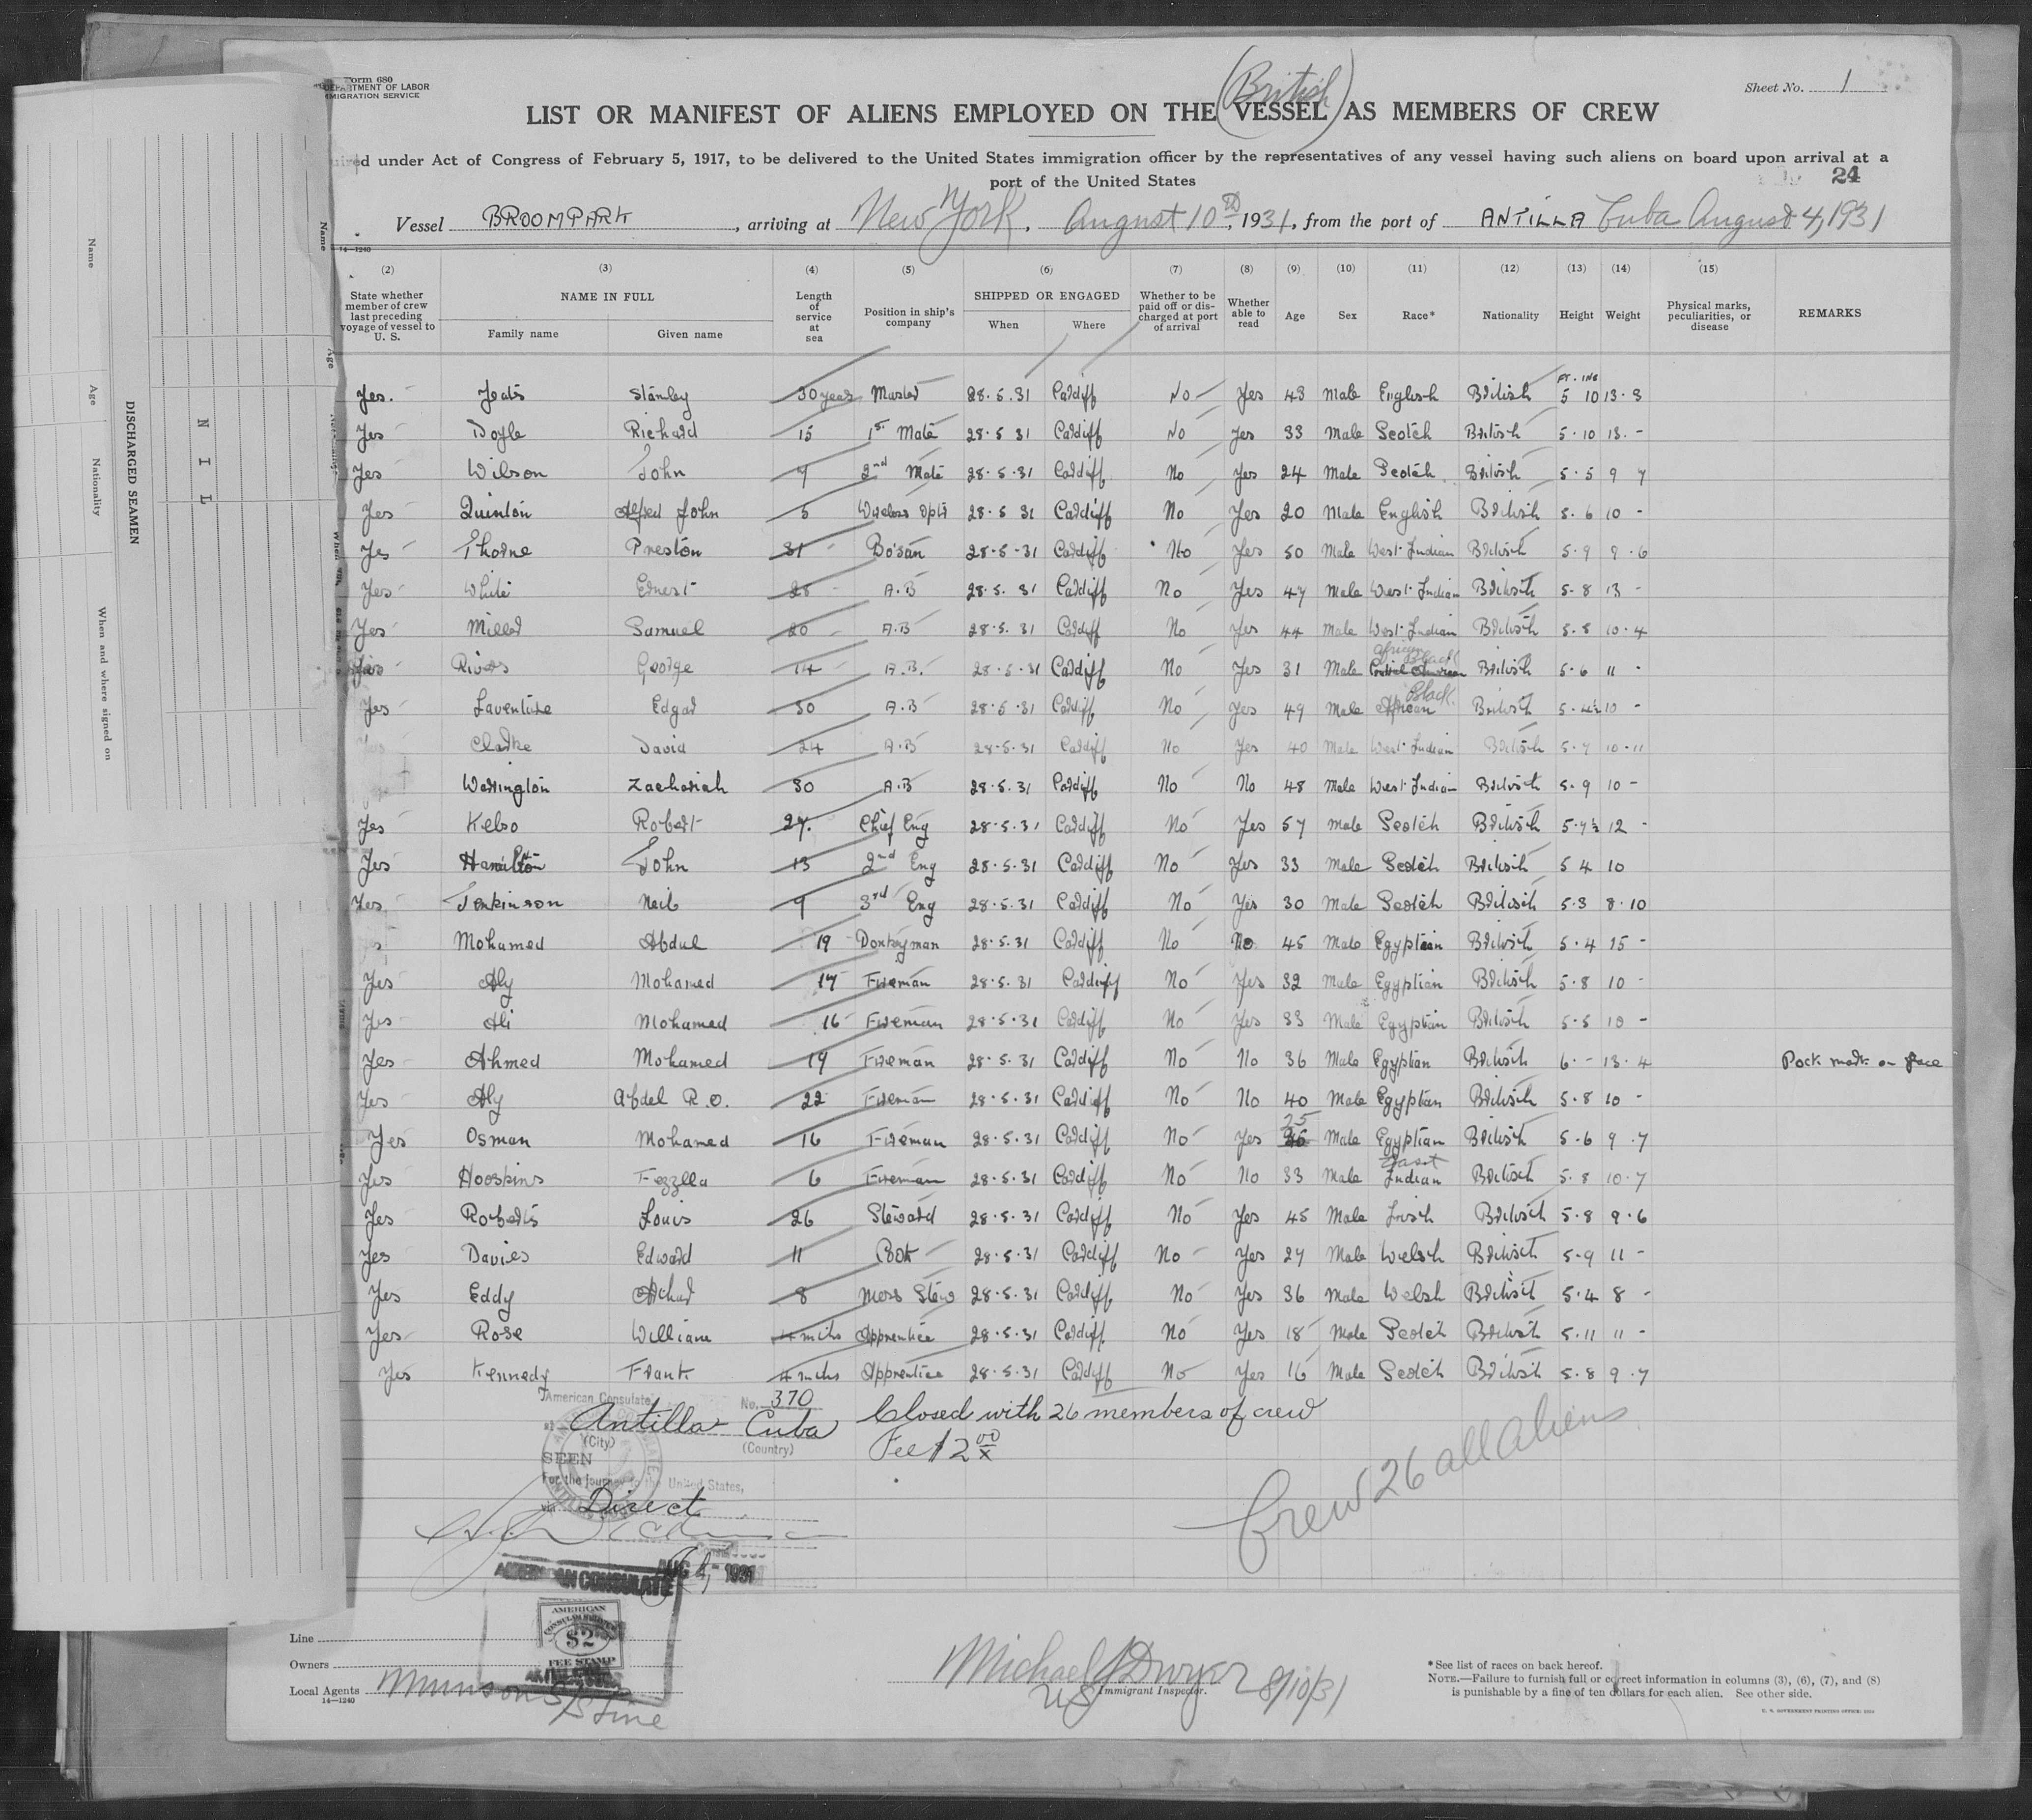 Form 680
DEPARTMENT OF LABOR
IMMIGRATION SERVICE
Sheet No. 1
(British)
LIST OR MANIFEST OF ALIENS EMPLOYED ON THE VESSEL AS MEMBERS OF CREW
uired under Act of Congress of February 5, 1917, to be delivered to the United States immigration officer by the representatives of any vessel having such aliens on board upon arrival at a
port of the United States
24
Vessel BROOMPARK, arriving at New York, August 10th, 1931, from the port of ANTILLA Cuba August 4, 1931
14—1240
(2) (3) (4) (5) (6) (7) (8) (9) (10) (11) (12) (13) (14) (15)
State whether member of crew last preceding voyage of vessel to U. S. NAME IN FULL Family name Given name Length of service at sea Position in ship's company SHIPPED OR ENGAGED When Where Whether to be paid off or discharged at port of arrival Whether able to read Age Sex Race* Nationality Height Weight Physical marks, peculiarities, or disease REMARKS
FT. INS
Yes. Stanley 30 years Master 28.5.31 Cardiff No Yes 43 Male English British 5 10 13.3
Yes Doyle Richard 15 1st Mate 28.5 31 Cardiff No Yes 33 Male Scotch British 5.10 13. -
Yes Wilson John 9 2nd Mate 28.5.31 Cardiff No Yes 24 Male Scotch British 5.5 9 7
Yes Quinton Alfred John 5 Wireless Optr 28.5 31 Cardiff No Yes 20 Male English British 5.6 10 -
Yes Thorne Preston 31 Bo'san 28.5.31 Cardiff No Yes 50 Male West Indian British 5.9 9.6
Yes White Ernest 28 A.B 28.5.31 Cardiff No Yes 47 Male West Indian British 5.8 13 -
Yes Miller Samuel 20 A.B 28.5.31 Cardiff No Yes 44 Male West Indian British 5.8 10.4
African Black
Yes Rivers George 14 A.B. 28.5.31 Cardiff No Yes 31 Male British 5.6 11 -
Black
Yes Laventure Edgar 30 A.B 28.5.31 Cardiff No Yes 49 Male African British 5.4½ 10 -
Yes Clarke David 24 A.B 28.5.31 Cardiff No Yes 40 Male West Indian British 5.7 10.11
Warrington Zachariah 30 A.B 28.5.31 Cardiff No No 48 Male West Indian British 5.9 10 -
Yes Kelso Robert 27. Chief Eng 28.5.31 Cardiff No Yes 57 Male Scotch British 5.7½ 12 -
Yes Hamilton John 13 2nd Eng 28.5.31 Cardiff No Yes 33 Male Scotch British 5 4 10
Yes Jenkinson Neil 9 3rd Eng 28.5.31 Cardiff No Yes 30 Male Scotch British 5.3 8.10
Mohamed Abdul 19 Donkeyman 28.5.31 Cardiff No No 45 Male Egyptian British 5.4 15 -
Yes Aly Mohamed 17 Fireman 28.5.31 Cardiff No Yes 32 Male Egyptian British 5.8 10 -
Yes Ali Mohamed 16 Fireman 28.5.31 Cardiff No Yes 33 Male Egyptian British 5.5 10 -
Yes Ahmed Mohamed 19 Fireman 28.5.31 Cardiff No No 36 Male Egyptian British 6. - 13.4 Pock mark on face
Yes Aly Abdel R.O. 22 Fireman 28.5.31 Cardiff No No 40 Male Egyptian British 5.8 10 -
35
Yes Osman Mohamed 16 Fireman 28.5.31 Cardiff No Yes Male Egyptian British 5.6 9.7
East
Yes Hooskins Fezzlla 6 Fireman 28.5.31 Cardiff No No 33 Male Indian British 5.8 10.7
Yes Roberts Louis 26 Steward 28.5.31 Cardiff No Yes 45 Male Irish British 5.8 9.6
Yes Davies Edward 11 Cook 28.5.31 Cardiff No Yes 27 Male Welsh British 5.9 11 -
Yes Eddy 8 Mess Stew 28.5.31 Cardiff No Yes 36 Male Welsh British 5.4 8 -
Yes Rose William 4 mths Apprentice 28.5.31 Cardiff No Yes 18 Male Scotch British 5.11 11 -
Yes Kennedy Frank 4 mths Apprentice 28.5.31 Cardiff No Yes 16 Male Scotch British 5.8 9.7
American Consulate No. 370
at Antilla Cuba
(City) (Country)
Closed with 26 members of crew
Fee $2 00/x
SEEN
For the journey to the United States,
via Direct
Crew 26 all aliens
AUG 4, 1931
AMERICAN CONSULATE
AMERICAN
$2
FEE STAMP
Line
Owners
Local Agents Munson S/S Line
14—1240
Michael J Dwyer 8/10/31
US Immigrant Inspector.
*See list of races on back hereof.
NOTE.—Failure to furnish full or correct information in columns (3), (6), (7), and (8)
is punishable by a fine of ten dollars for each alien. See other side.
U. S. GOVERNMENT PRINTING OFFICE
DISCHARGED SEAMEN
Name
Age
Nationality
When and where signed on
NIL
Name
Age